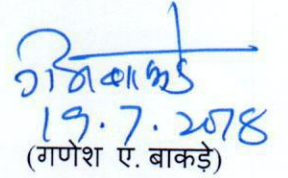 19.7.2018
(गणेश ए. बाकड़े)